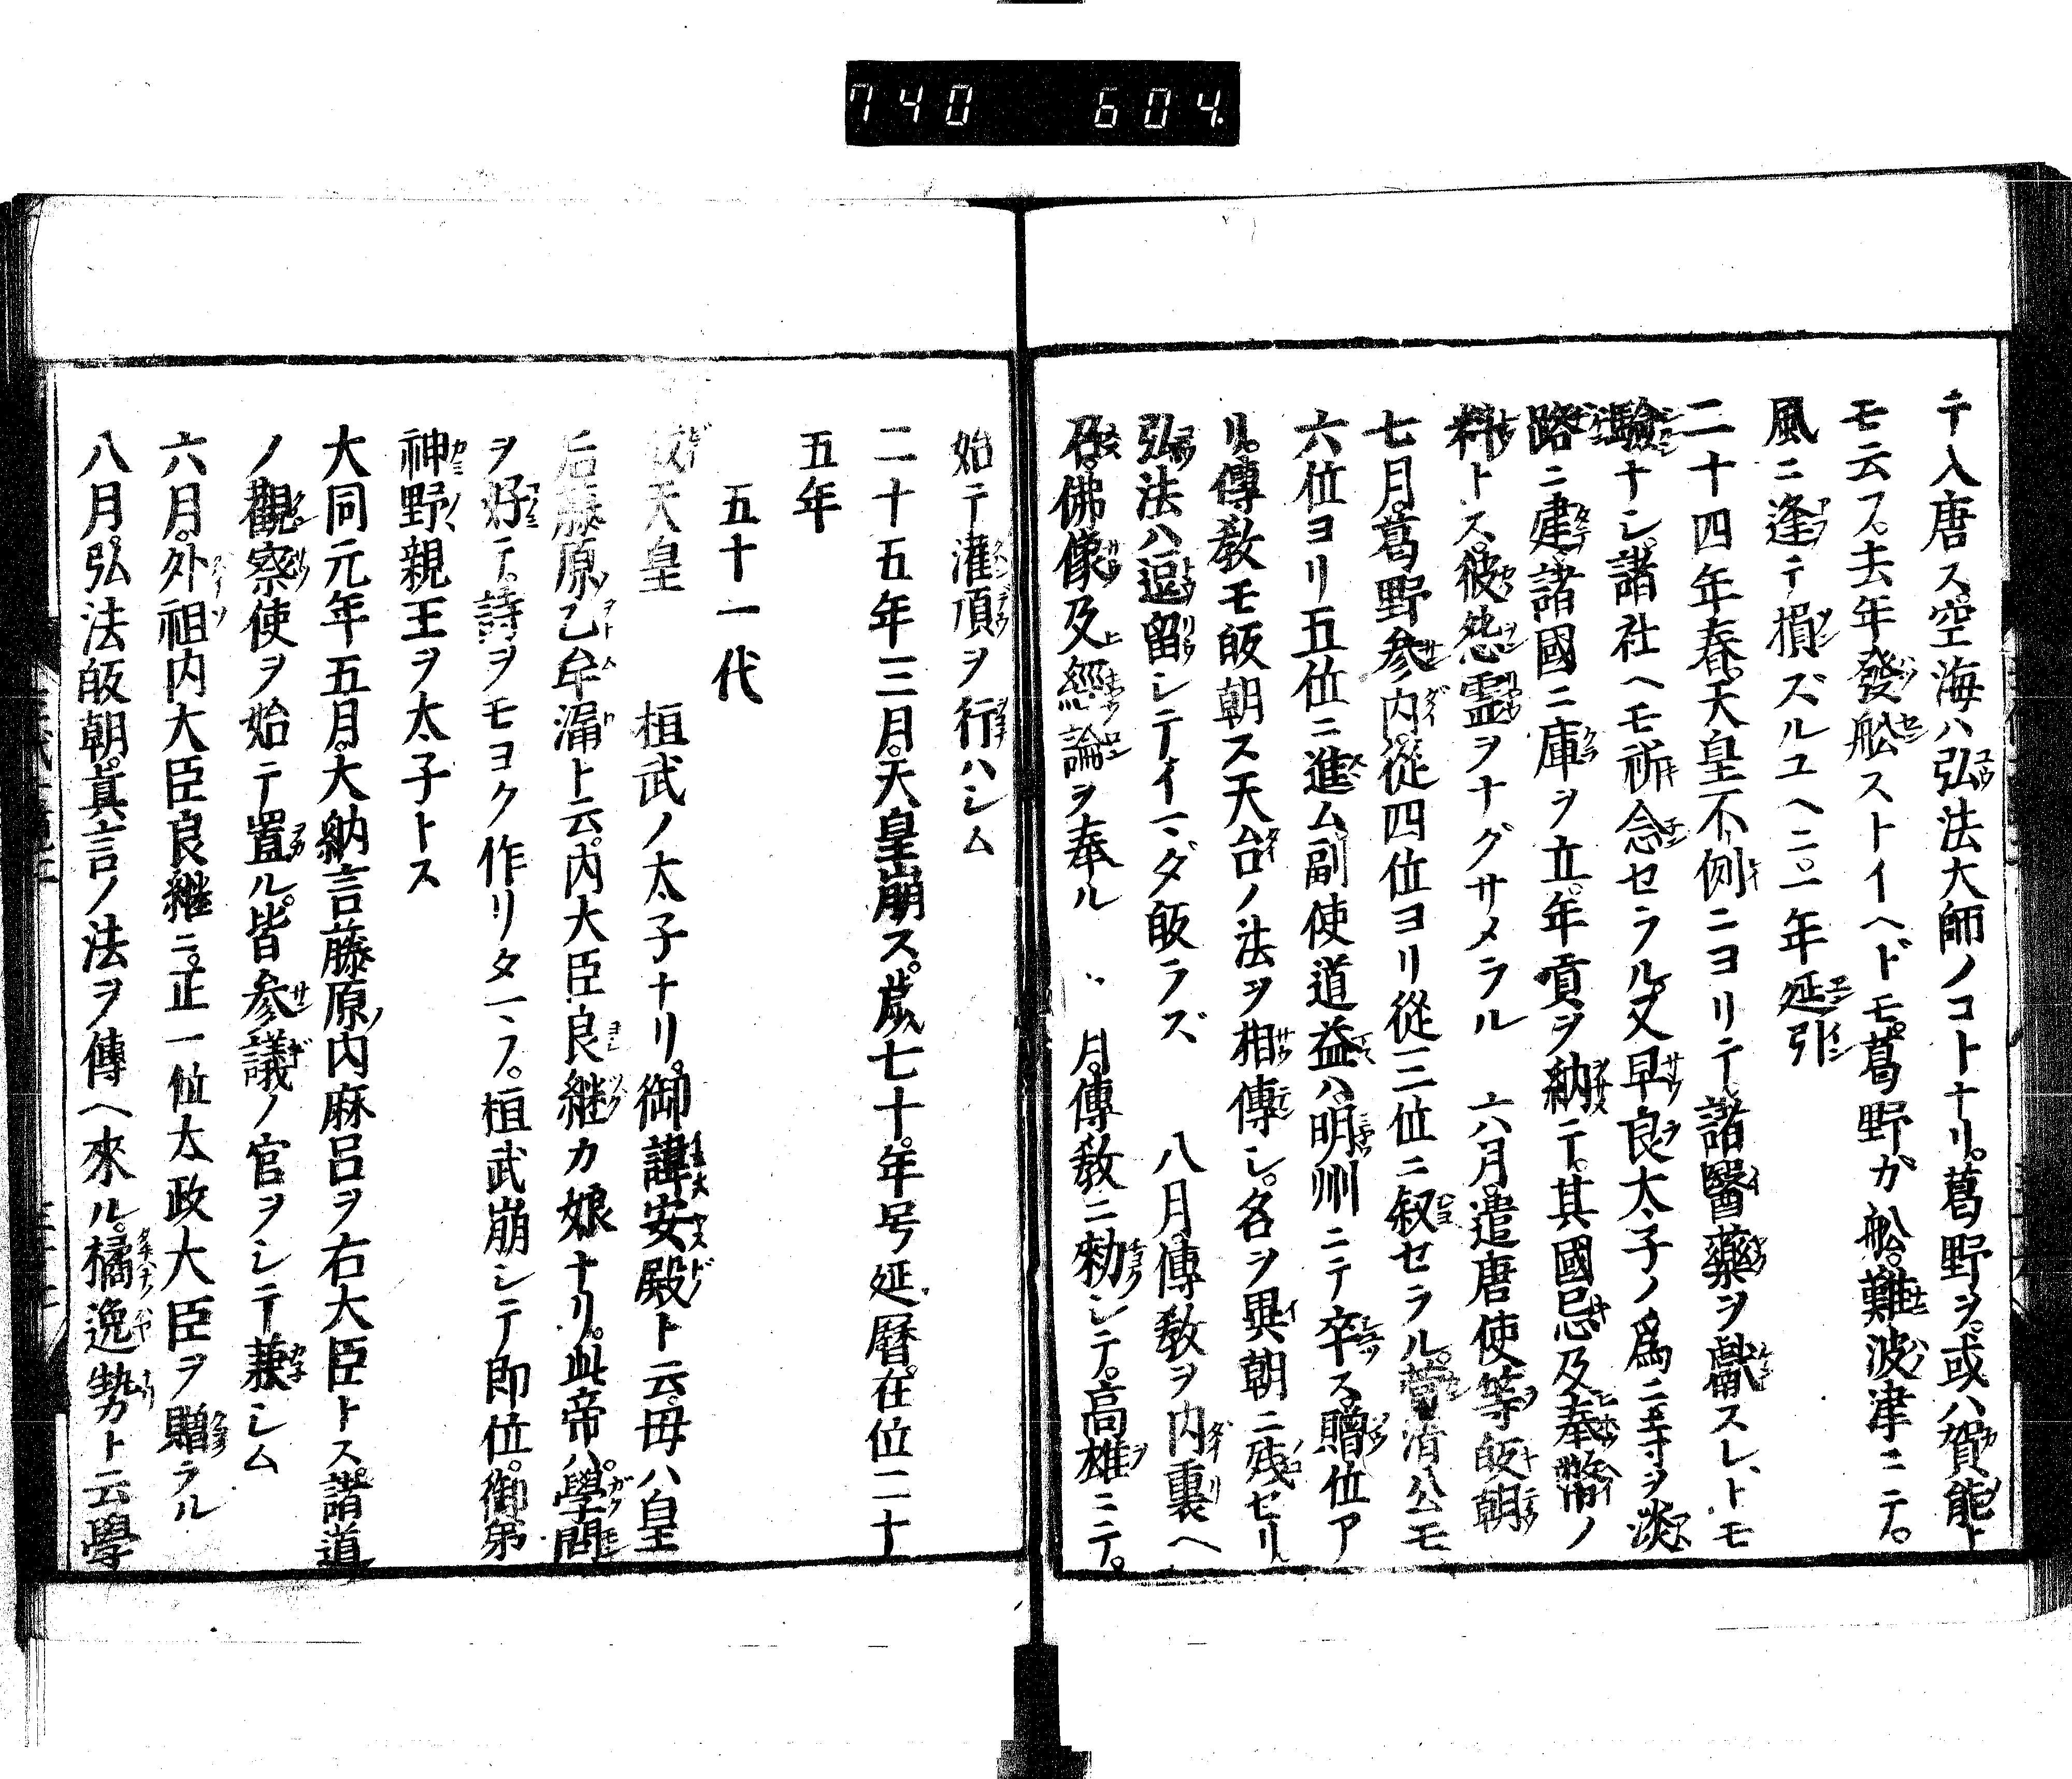 740 604.
テ入唐ス。空海ハ弘法大師ノコトナリ。葛野ヲ。或ハ賀能ト
モ云フ。去年發舩ストイヘドモ。葛野ガ舩。難波津ニテ。
風ニ逢テ損ズルユヘニ。一年延引
二十四年春。天皇不例ニヨリテ。諸醫藥ヲ獻スレトモ
驗ナシ。諸社ヘモ祈念セラル。又早良太子ノ爲ニ寺ヲ淡
路ニ建。諸國ニ庫ヲ立。年貢ヲ納テ。其國忌及奉幣ノ
料トス。彼怨霊ヲナグサメラル 六月。遣唐使等皈朝
七月。葛野参内。從四位ヨリ從三位ニ叙セラル。菅清公モ
六位ヨリ五位ニ進ム。副使道益ハ。明州ニテ卒ス。贈位ア
リ。傳教モ皈朝ス。天台ノ法ヲ相傳シ。名ヲ異朝ニ残セリ
弘法ハ逗留シテイマダ皈ラズ 八月。傳教ヲ内裏ヘ
召。佛像及經論ヲ奉ル 月。傳教ニ勅シテ。高雄ニテ。
始テ灌頂ヲ行ハシム
二十五年三月。天皇崩ス。歳七十。年号延暦。在位二十
五年
五十一代
天皇 桓武ノ太子ナリ。御諱安殿ト云。母ハ皇
后藤原乙牟漏ト云。内大臣良継カ娘ナリ。此帝ハ。學問
ヲ好テ。詩ヲモヨク作リタマフ。桓武崩シテ即位。御弟
神野親王ヲ太子トス
大同元年五月。大納言藤原内麻呂ヲ右大臣トス。諸道
ノ觀察使ヲ始テ置ル。皆参議ノ官ヲシテ兼シム
六月。外祖内大臣良継ニ。正一位太政大臣ヲ贈ラル
八月。弘法皈朝。真言ノ法ヲ傳ヘ來ル。橘逸勢ト云學